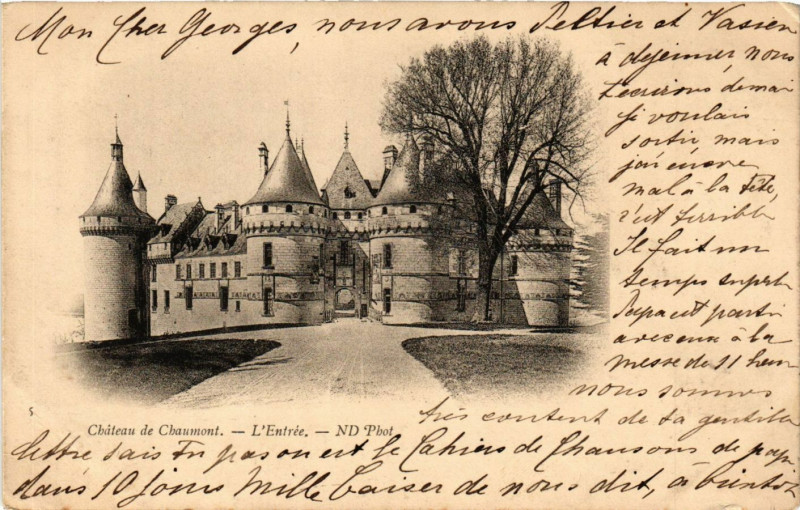 Mon Cher Georges, nous avons Peltier et Vasien
à déjeuner, nous
t'écrirons demai
je voulais
sortir, mais
j'ai encore
mal à la tête,
c'est terrible
Il fait un
temps superb
Papa est parti
avec eux à la
messe de 11 heur
nous sommes
très content de ta gentille
lettre sais tu pas ou est le Cahier de Chansons de papa
dans 10 jours Mille baiser de nous dit, à bientôt
5
Château de Chaumont. — L'Entrée. — ND Phot